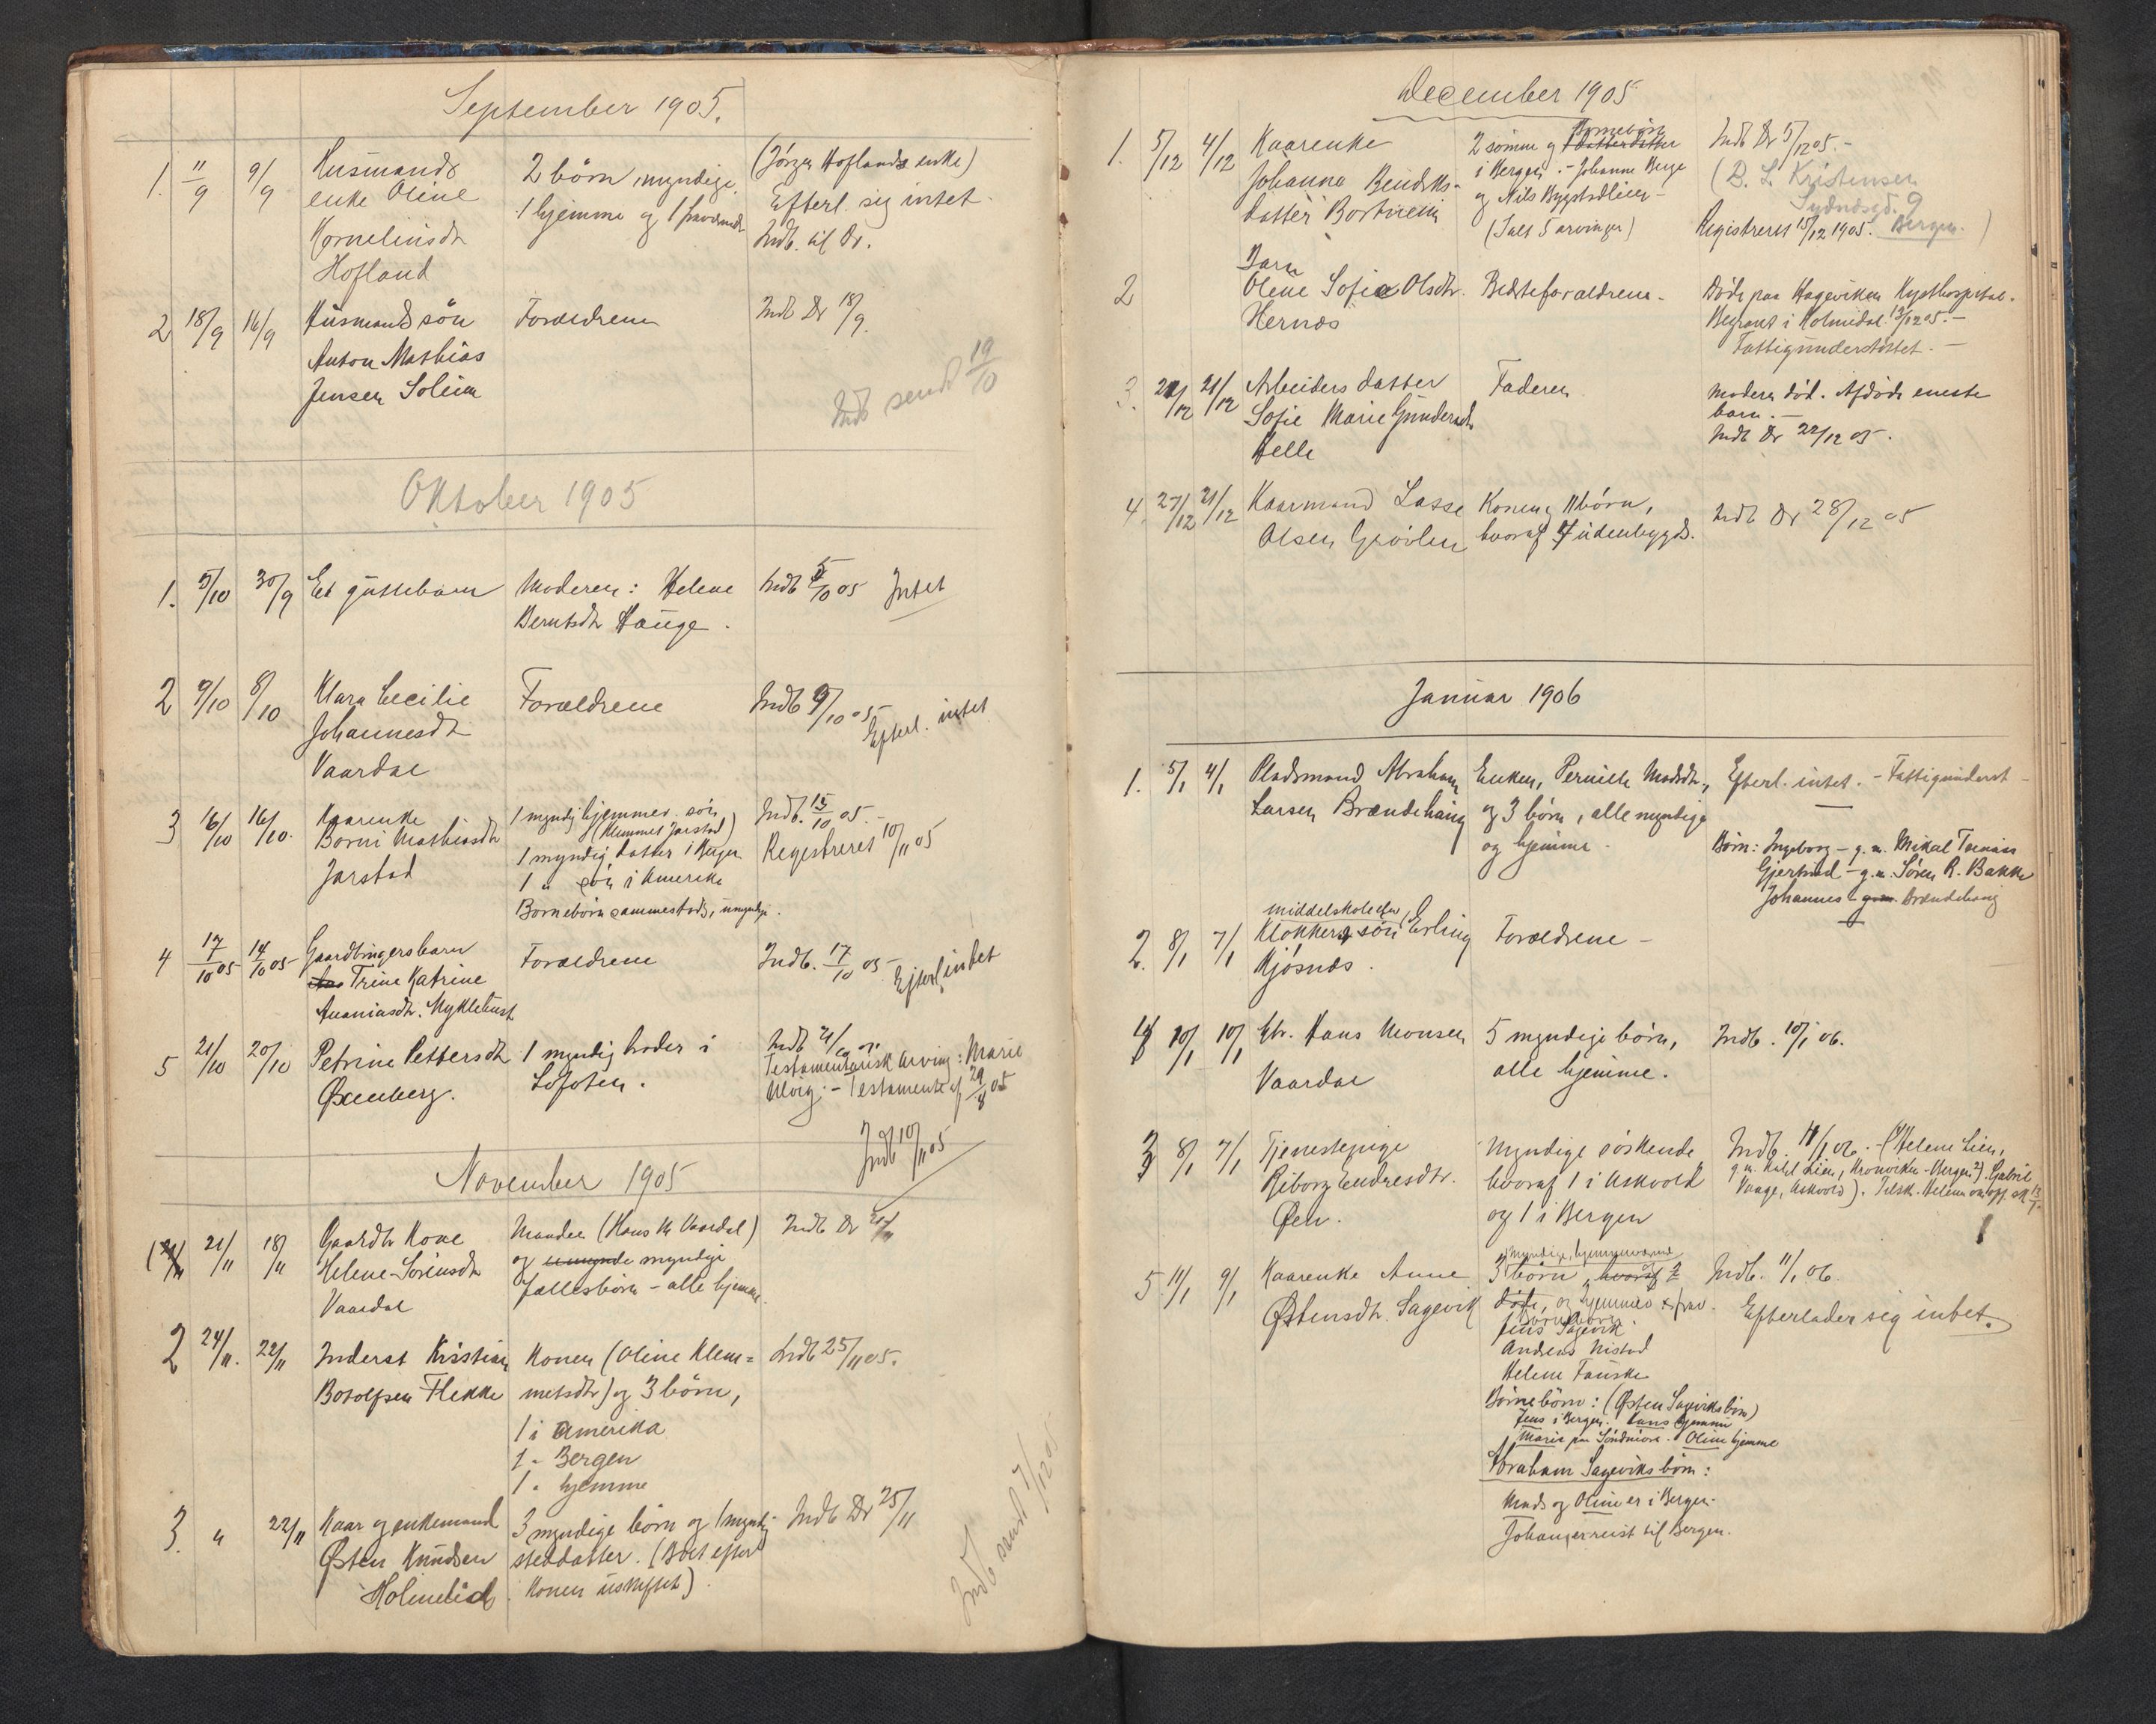 September 1905.
1. 11/9 9/9 Husmands enke Oline Kornelinsdtr Hofland
2 börn, myndige. 1 hjemme og 1 fraværende
(Jörgen Hoflands enke)
Efterl. sig intet.
Indb. til Dr.
2 18/9 16/9 Husmandssön
Anton Mathias
Jensen Solheim
Forældrene
Indb Dr 18/9.
Indb sendt 19/10
Oktober 1905
1. 5/10 30/9 Et guttebarn
Moderen: Helene
Berntsdtr Hauge.
Indb 5/10 05 Intet
2 9/10 8/10 Klara Cecilie
Johannesdtr
Vaardal
Forældrene
Indb 9/10 05
Efterl. intet
3 16/10 16/10. Kaarenke
Borni Mathiasdtr
Jarstad
1 myndig hjemmev. sön
(Klemmet Jarstad)
1 myndig datter i Bergen
1 " sön i Amerika
Bornebörn sammesteds, umyndige.
Indb. 15/10 05.-
Registreret 10/11 05
4 17/10 05 14/10 05 Gaardbrugersbarn
Trine Katrine
Ananiasdtr. Myklebust
Forældrene
Indb. 17/10 05
Efterl. intet
5 21/10 20/10 Petrine Pettersdtr
Øxenberg.
1 myndig broder i
Lofoten.
Indb 21/10 05.
Testamentarisk arving: Marie
Ulvig. - Testamente af 29/8 05
Indb 10/11 05
November 1905
21/11 18/11 Gaardbr Kone
Helene Sörensdtr
Vaardal
Manden (Hans M Vaardal)
og myndige
fællesbörn - alle hjemme.
Indb Dr 21/11
2 24/11. 22/11 Inderst Kristian
Botolfsen Flekke
Konen (Oline Klem=
metsdtr) og 3 börn,
1 i Amerika
1 - Bergen
1 - hjemme
Indb 25/11 05.
3. " 22/11 Kaar og enkemand
Østen Knudsen
Holmelid
3 myndige börn og 1 myndig
steddatter. (Boet efter
Konen uskiftet).
Indb Dr 25/11
Indb sendt 7/12 05
December 1905
1. 5/12 4/12 Kaarenke
Johanna Bendiks-
datter
2 sönner og Bornebörn
i Bergen. - Johanne Berge
og Nils Bygstadlien -
(Ialt 5 arvinger)
Indb Dr 5/12 05.-
(B. L. Kristensen
9
Bergen.)
Registreret 15/12 1905.
2 Barn
Oline Sofie Olsdtr.
Hernæs
Bedsteforældrene.
Döde paa Hageviken Kysthospital.
Begravet i Holmedal 13/12 05.-
Fattigunderstöttet.-
3. 22/12 21/12 Arbeiders datter
Sofie Marie Gundersdtr
Helle
Faderen
Moderen död. Afdöde eneste
barn.-
Indb Dr 22/12 05.
4. 27/12 21/12 Kaarmand Lasse
Olsen Grövlen
Konen og 11 börn,
hvoraf 7 udenbygds.
Indb Dr 28/12 05
Januar 1906
1. 5/1 4/1 Pladsmand Abraham
Larsen Brændehaug
Enken, Pernille Madsdtr,
og 3 börn, alle myndige
og hjemme.
Efterl. intet. - Fattigunderst -
Börn: Ingeborg - g. m. Mikal
Gjertrud - g. m. Sören R. Bakke
Johannes Brændehaug
2. 8/1 7/1 middelskoleelev
Klokkersön Erling
Kjösnæs.
Forældrene -
4 10/1 10/1 Gbr. Hans Monsen
Vaardal
5 myndige börn,
alle hjemme.
Indb. 10/1 06.
3 8/1 7/1 Tjenestepige
Riborg Endresdtr.
Øen.
Myndige söskende
hvoraf 1 i Askvold
og 1 i Bergen
Indb. 11/1 06. - (Helene Lien,
Bergen?). Gabriel
Vaage, Askvold).
5. 11/1 9/1 Kaarenke Anne
Østensdtr. Sagevik
myndige, hjemmeværende
3 börn, hvoraf 2
döde,
Jens Sagevik
Andreas Nistad
Helene Fauske
Börnebörn: (Østen Sageviks börn)
Jens i Bergen. Hans hjemme
Marie paa Söndmöre. Oline hjemme
Abraham Sageviks börn:
Mads og Oline er i Bergen.
Johan er reist til Bergen.
Indb. 11/1 06.
Efterlader sig intet.